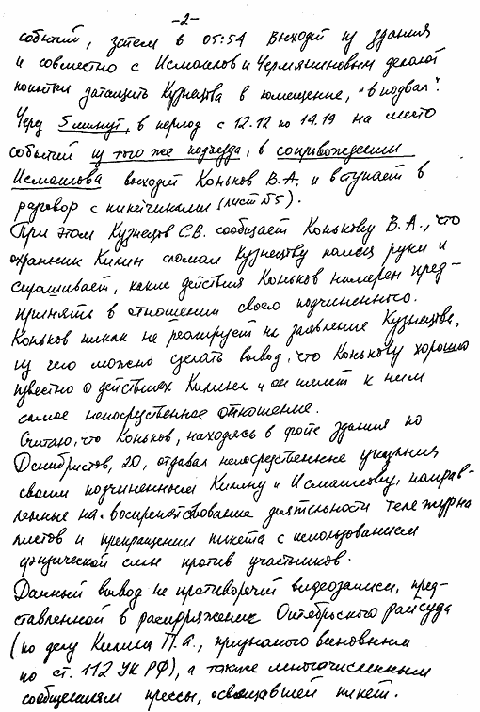 -2-
событий, затем в 05:54 выходит из здания
и совместно с Исмаилов и Чермяниновым делают
попытки затащить Кузнецова в помещение, "в подвал".
Через 5 минут, в период с 12.12 по 14.19 на место
событий из того же подъезда, в сопровождении
Исмаилова выходит Коньков В.А. и вступает в
разговор с пикетчиками (лист №5).
При этом Кузнецов С.В. сообщает Конькову В.А., что
охранник Килин сломал Кузнецову палец руки и
спрашивает, какие действия Коньков намерен пред-
принять в отношении своего подчиненного.
Коньков никак не реагирует на заявление Кузнецова,
из чего можно сделать вывод, что Конькову хорошо
известно о действиях Килина и он имеет к ним
самое непосредственное отношение.
Считаю, что Коньков, находясь в фойе здания по
Декабристов, 20, отдавал непосредственные указания
своим подчиненным Килину и Исмаилову, направ-
ленные на воспрепятствование деятельности тележурна
листов и прекращении пикета с использованием
физической силы против участников.
Данный вывод не противоречит видеозаписи, пред-
ставленной в распоряжение Октябрьского райсуда
(по делу Килина П.А., признаного виновным
по ст. 112 УК РФ), а также многочисленным
сообщениям прессы, освещавшей пикет.